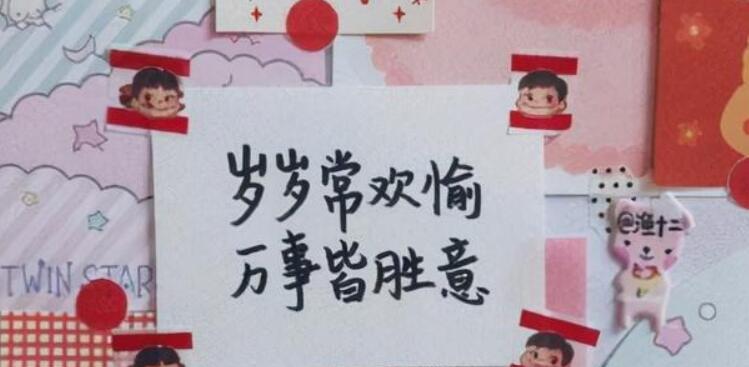 岁岁常欢愉
万事皆胜意
@渔十二
TWIN STAR